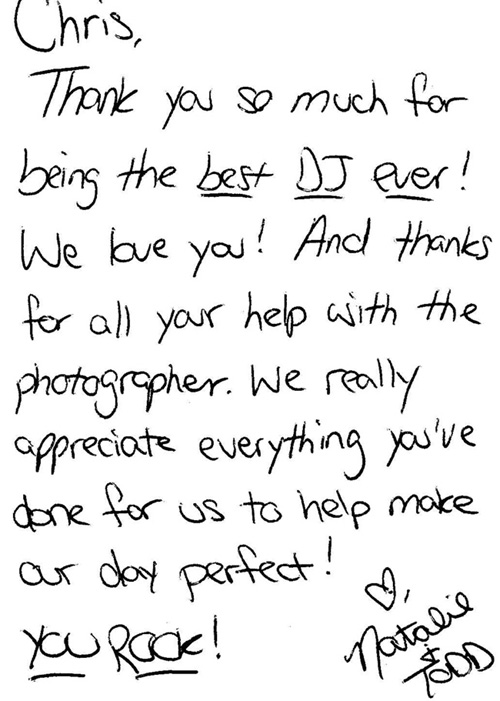 Chris,
Thank you so much for
being the best DJ ever!
We love you! And thanks
for all your help with the
photographer. We really
appreciate everything you've
done for us to help make
our day perfect!
You Rock!
♡,
Natalie
& TODD